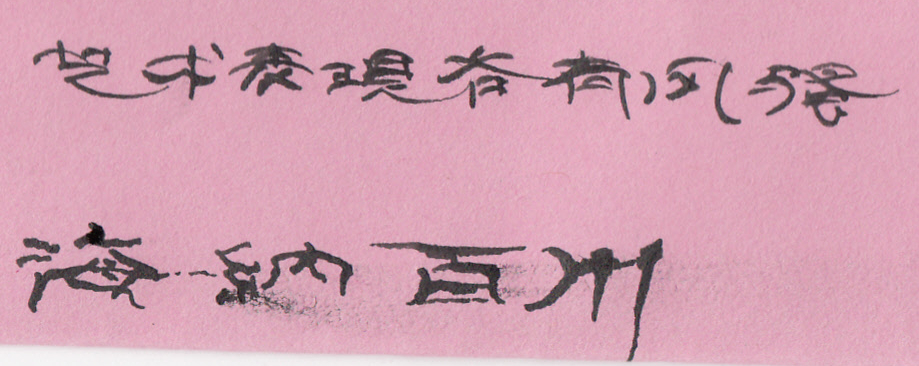 艺术表現各有风骚
海納百川